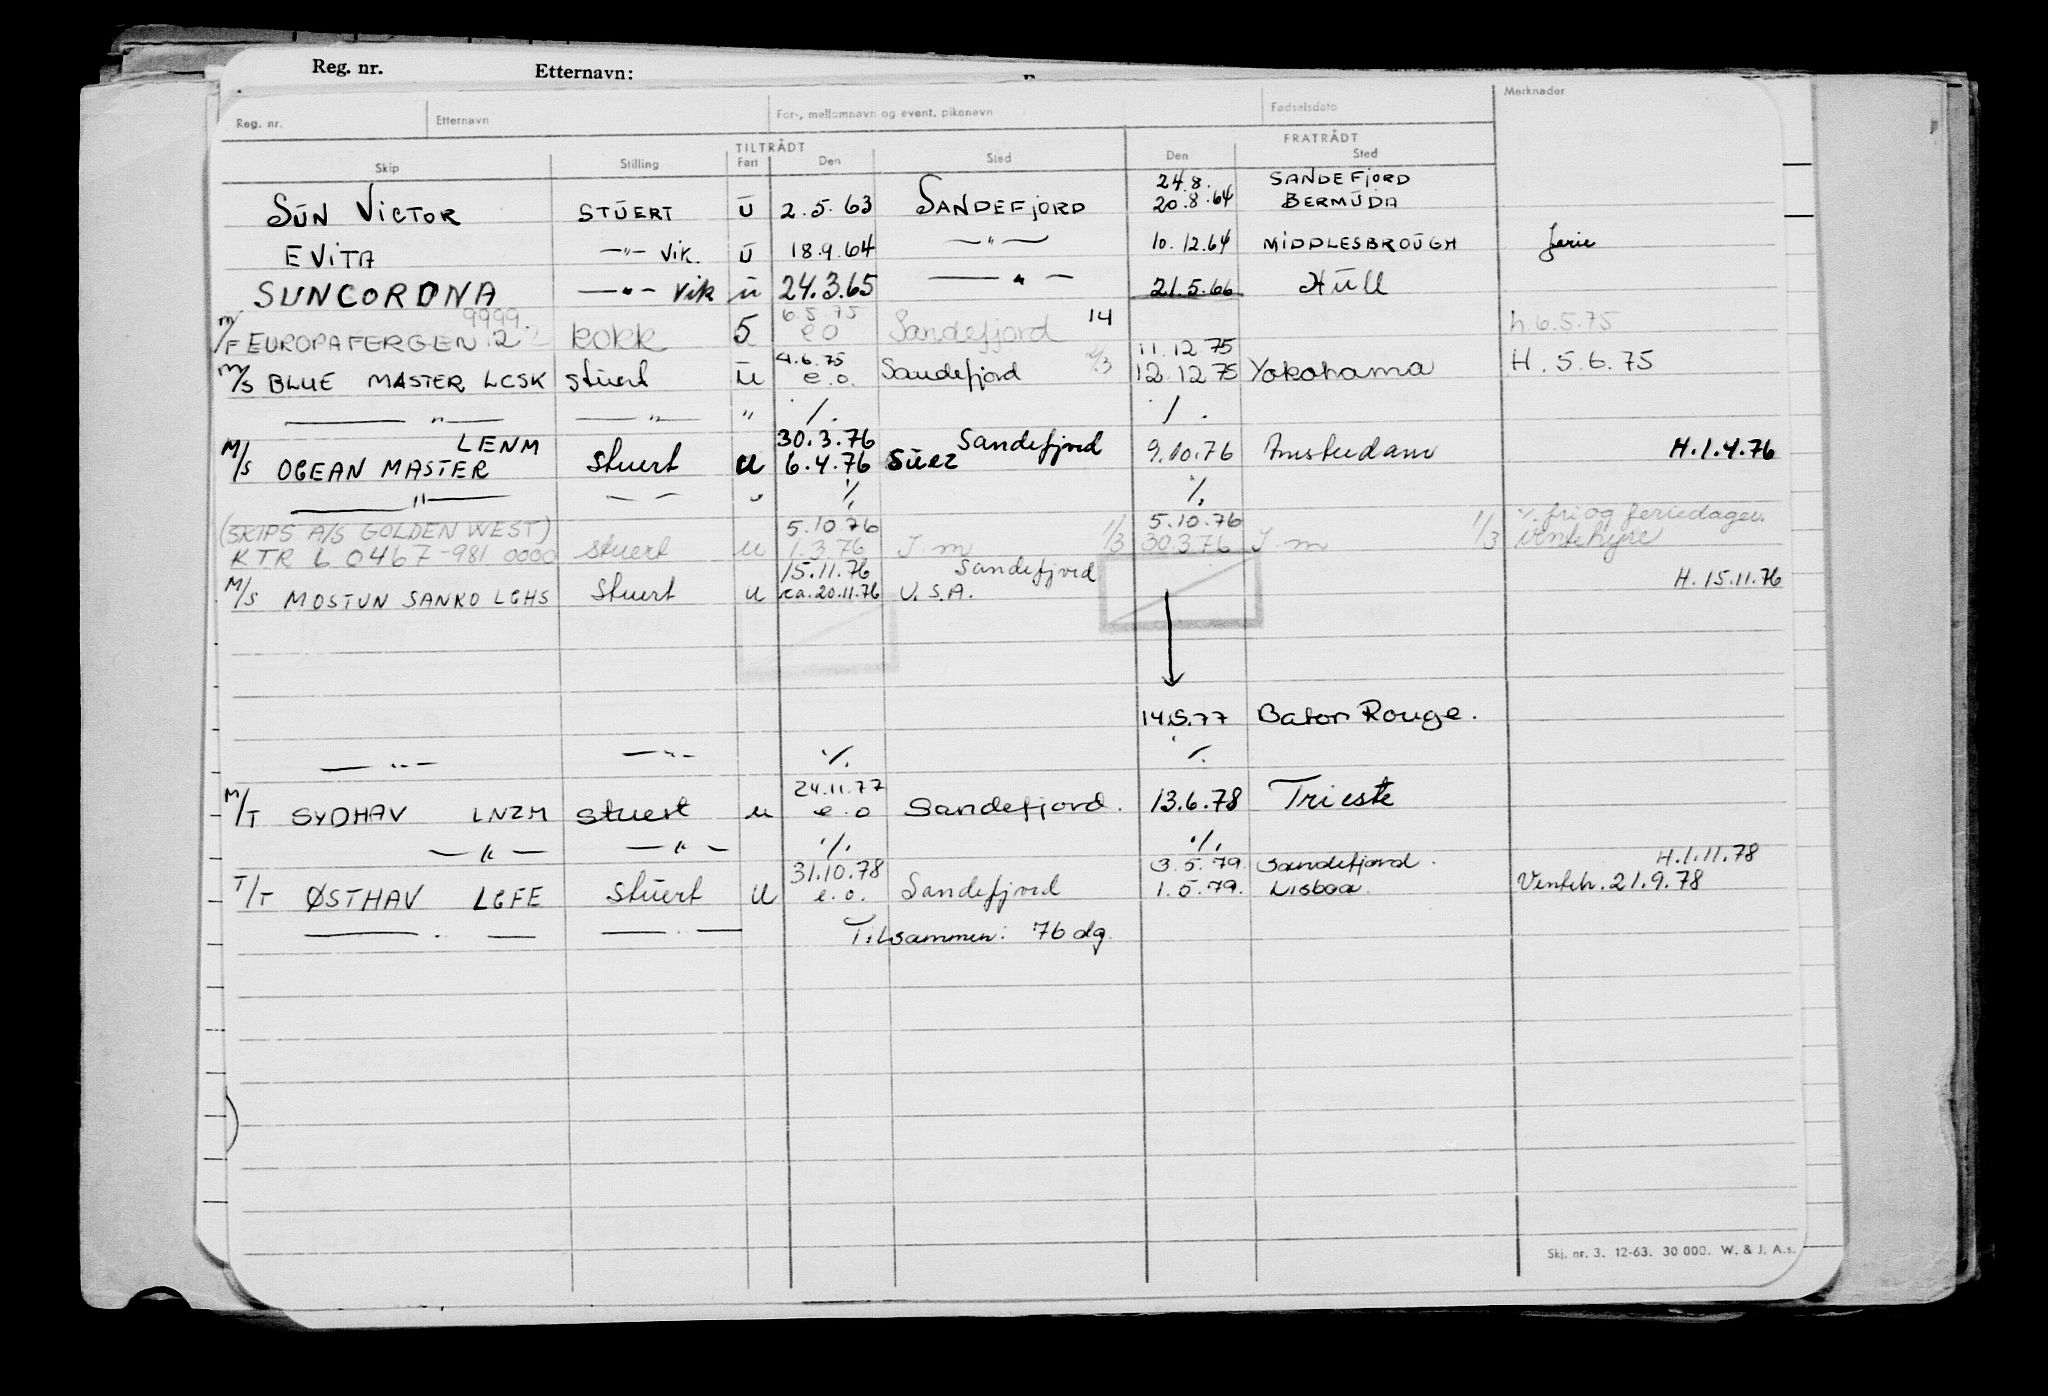 Reg. nr. Etternavn:
Reg. nr. Etternavn For-, mellomnavn og event. pikenavn Fødselsdato Merknader
TILTRÅDT FRATRÅDT
Skip Stilling Fart Den Sted Den Sted
24.8. SANDEFJORD
SUN VICTOR STUERT U 2.5.63 SANDEFJORD 20.8.64 BERMUDA
EVITA —"— VIK. U 18.9.64 —"— 10.12.64 MIDDLESBROUGH ferie
SUNCORONA —"— Vik u 24.3.65 —"— 21.5.66 Hull
9999. 6.5.75 14
M/F EUROPAFERGEN 2 kokk 5 e o Sandefjord h.6.5.75
4.6.75 11.12.75
M/S BLUE MASTER LCSK stuert U e.o. Sandefjord 2/3 12.12.75 Yokohama H. 5.6.75
—"— —"— " ./. ./.
LENM 30.3.76 Sandefjord
M/S OCEAN MASTER Stuert u 6.4.76 Suez 9.10.76 Amsterdam H.1.4.76
—"— — — " ./. ./.
(SKIPS A/S GOLDEN WEST) 5.10.76 5.10.76 ./. fri og feriedager.
KTR L 0467-981 0000 stuert u 1.3.76 I m 1/3 30.3.76 I m 1/3 Ventehyre
15.11.76 Sandefjord
M/S MOSTUN SANKO LGHS Stuert u ca.20.11.76 U.S.A. H. 15.11.76
14.5.77 Baton Rouge.
—"— —"— ./. ./.
24.11.77
M/T SYDHAV LNZM stuert u e.o Sandefjord. 13.6.78 Trieste
—"— —"— ./. ./.
31.10.78 3.5.79. Sandefjord. H.1.11.78
T/T ØSTHAV LGFE Stuert U e.o. Sandefjord 1.5.79. Lisboa. Venteh.21.9.78
— .. — — .. — Tilsammen: 76 dg.
Skj. nr. 3. 12-63. 30 000. W. & J. A.s.